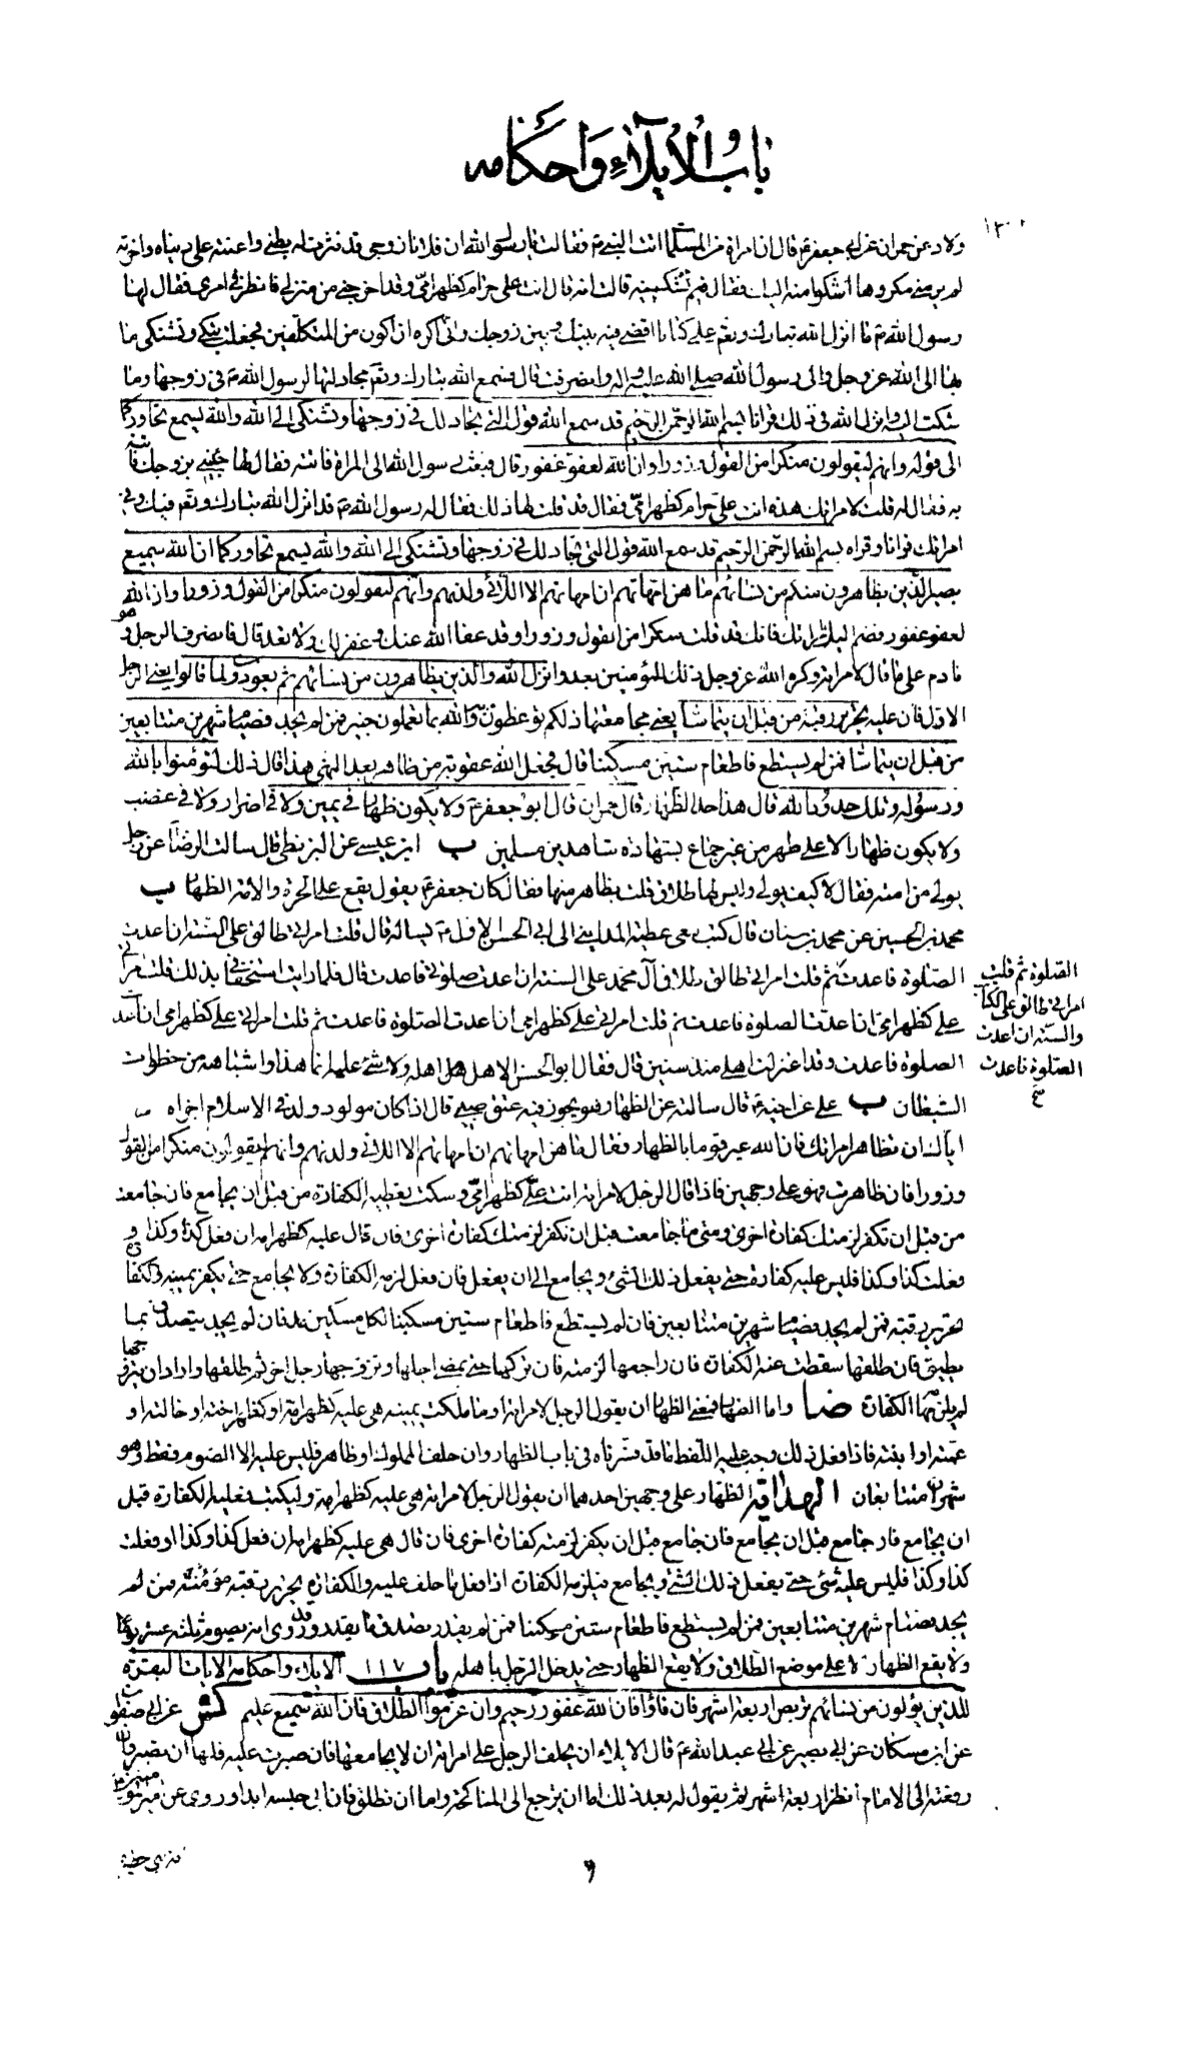 باب الايلاء واحكامه
ولاد عن حمران عن ابي جعفر ع قال ان امراة من المسلمات اتت النبي ص فقالت يا رسول الله ان فلانا زوجي قد نثرت له بطني واعنته على دنياه واخرته
لم ير مني مكروها اشكوا منه اليك فقال فيم تشكينه قالت انه قال انت علي حرام كظهر امي وقد اخرجني من منزلي فانظر في امري فقال لها
رسول الله ص ما انزل الله تبارك وتعم علي كتابا اقضي فيه بينك وبين زوجك واني اكره ان اكون من المتكلفين فجعلت تبكي وتشتكي ما
بها الى الله عز وجل والى رسول الله صلى الله عليه واله وانصرفت قال فسمع الله تبارك وتعم مجادلتها لرسول الله ص في زوجها وما
شكت اليه وانزل الله في ذلك قرانا بسم الله الرحمن الرحيم قد سمع الله قول التي تجادلك في زوجها وتشتكي الى الله والله يسمع تحاوركما
الى قوله وانهم ليقولون منكرا من القول وزورا وان الله لعفو غفور قال فبعث رسول الله الى المراة فاتته فقال لها جيئيني بزوجك فاتته
به فقال له قلت لامراتك هذه انت علي حرام كظهر امي فقال قد قلت لها ذلك فقال له رسول الله ص قد انزل الله تبارك وتعم فيك وفي
امراتك قرانا وقراه بسم الله الرحمن الرحيم قد سمع الله قول التي تجادلك في زوجها وتشتكي الى الله والله يسمع تحاوركما ان الله سميع
بصير الذين يظاهرون منكم من نسائهم ما هن امهاتهم ان امهاتهم الا اللائي ولدنهم وانهم ليقولون منكرا من القول وزورا وان الله
لعفو غفور فضم اليك امراتك فانك قد قلت منكرا من القول وزورا وقد عفا الله عنك وغفر لك ولا تعد قال فانصرف الرجل وهو
نادم على ما قال لامراته وكره الله عز وجل ذلك للمؤمنين بعد وانزل الله والذين يظاهرون من نسائهم ثم يعودون لما قالوا يعني الرجل
الاول فان عليه تحرير رقبة من قبل ان يتماسا يعني مجامعتها ذلكم توعظون به والله بما تعملون خبير فمن لم يجد فصيام شهرين متتابعين
من قبل ان يتماسا فمن لم يستطع فاطعام ستين مسكينا قال فجعل الله عقوبة من ظاهر بعد النهي هذا قال ذلك لتؤمنوا بالله
ورسوله وتلك حدود الله قال هذا حد الظهار قال حمران قال ابو جعفر ع ولا يكون ظهار في يمين ولا في اضرار ولا في غضب
ولا يكون ظهار الا على طهر من غير جماع بشهادة شاهدين مسلمين ب ابن عيسى عن البزنطي قال سالت الرضا عن رجل
يولي من امته فقال لا كيف يولي وليس لها طلاق قلت يظاهر منها فقال كان جعفر ع يقول يقع على الحرة والامة الظهار ب
محمد بن الحسين عن محمد بن سنان قال كتب معي عطية المدايني الى ابي الحسن الاول ع يساله قال قلت امراتي طالق على السنة ان اعدت
الصلوة فاعدت ثم قلت امراتي طالق طلاق آل محمد على السنة ان اعدت صلوتي فاعدت قال فلما رايت استخفافي بذلك قلت امراتي
علي كظهر امي ان اعدت الصلوة فاعدت ثم قلت امراتي علي كظهر امي ان اعدت الصلوة فاعدت ثم قلت امراتي علي كظهر امي ان اعدت
الصلوة فاعدت وقد اعتزلت اهلي منذ سنين قال فقال ابو الحسن الاهل اهله ولا شئ عليه انما هذا واشباهه من خطوات
الشيطان ب علي عن اخيه ع قال سالته عن الظهار هل يجوز فيه عتق صبي قال اذا كان مولود ولد في الاسلام اجزاه
اياك ان تظاهر امراتك فان الله عير قوما بالظهار فقال ما هن امهاتهم ان امهاتهم الا اللائي ولدنهم وانهم ليقولون منكرا من القول
وزورا فان ظاهرت فهو على وجهين فاذا قال الرجل لامراته انت علي كظهر امي وسكت فعليه الكفارة من قبل ان يجامع فان جامعت
من قبل ان تكفر لزمتك كفارة اخرى ومتى ما جامعت قبل ان تكفر لزمتك كفارة اخرى فان قال عليه كظهر امه ان فعل كذا وكذا و
فعلت كذا وكذا فليس عليه كفارة حتى يفعل ذلك الشئ ويجامع الى ان يفعل فان فعل لزمه الكفارة ولا يجامع حتى يكفر يمينه والكفارة
تحرير رقبة فمن لم يجد فصيام شهرين متتابعين فان لم يستطع فاطعام ستين مسكينا لكل مسكين مد فان لم يجد يتصدق بما
يطيق فان طلقها سقطت عنه الكفارة فان راجعها لزمته فان تركها حتى يمضي اجلها وتزوجها رجل اخر ثم طلقها واراد ان يتزوجها
لم يلزمها الكفارة ضا واما الظهار فمعنى الظهار ان يقول الرجل لامراته او ما ملكت يمينه هي عليه كظهر امه او كظهر اخته او خالته او
عمته او ابنته فاذا فعل ذلك وجب عليه اللفظ ما قد فسرناه في باب الظهار وان حلف المملوك او ظاهر فليس عليه الا الصوم فقط وهو
شهران متتابعان الهداية الظهار على وجهين احدهما ان يقول الرجل لامراته هي عليه كظهر امه وليكتب فعليه الكفارة قبل
ان يجامع فان جامع قبل ان يجامع فان جامع قبل ان يكفر لزمته كفارة اخرى فان قال هي عليه كظهر امه ان فعل كذا وكذا او فعلت
كذا وكذا فليس عليه شئ حتى يفعل ذلك الشئ ويجامع فيلزمه الكفارة اذا فعل ما حلف عليه والكفارة تحرير رقبة مؤمنة فمن لم
يجد فصيام شهرين متتابعين فمن لم يستطع فاطعام ستين مسكينا فمن لم يقدر يصدق ما يقدر وقد روى انه يصوم ثمانية عشر يوما
ولا يقع الظهار الا على موضع الطلاق ولا يقع الظهار حتى يدخل الرجل باهله باب ١١٧ الايلاء واحكامه الايات البقرة
للذين يؤلون من نسائهم تربص اربعة اشهر فان فاؤا فان الله غفور رحيم وان عزموا الطلاق فان الله سميع عليم عن ابي
عن ابن مسكان عن ابي بصير عن ابي عبد الله ع قال الايلاء ان يحلف الرجل على امراته ان لا يجامعها فان صبرت عليه فلها ان تصبر وان
رفعته الى الامام انظره اربعة اشهر ثم يقول له بعد ذلك اما ان ترجع الى المناكحة واما ان تطلق فان ابى حبسه ابدا وروى عن امير المؤمنين
الصلوة ثم قلت
امراتي طالق على الكتاب
والسنة ان اعدت
الصلوة فاعدت